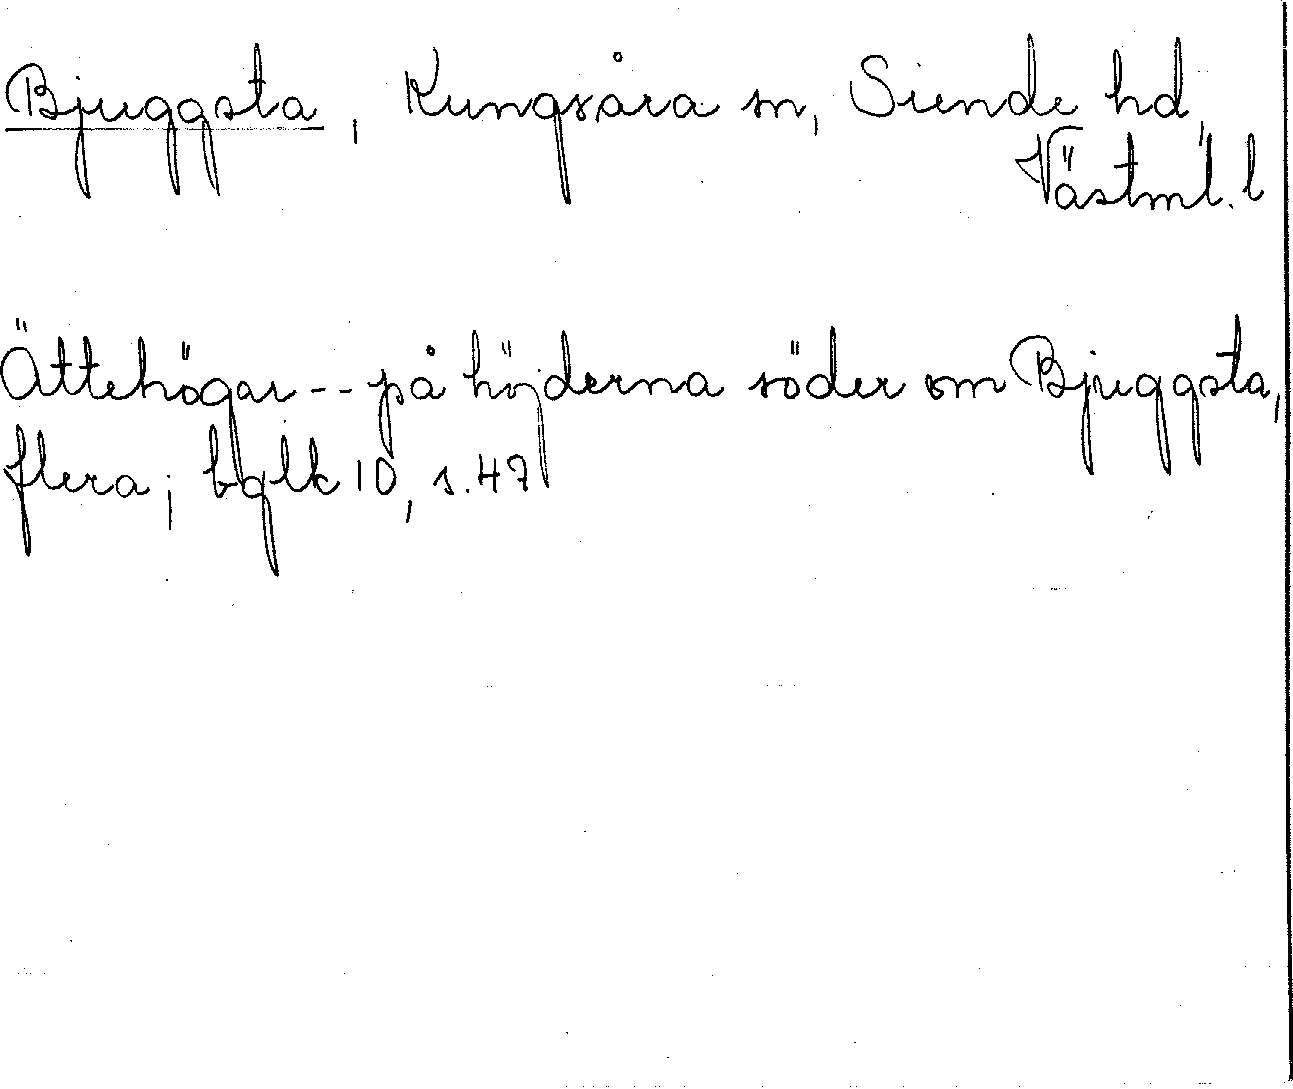 Bjuggsta, Kungsåra sn, Siende hd,
Västml. l
Ättehögar -- på höjderna söder om Bjuggsta,
flera; bglk 10, s. 47